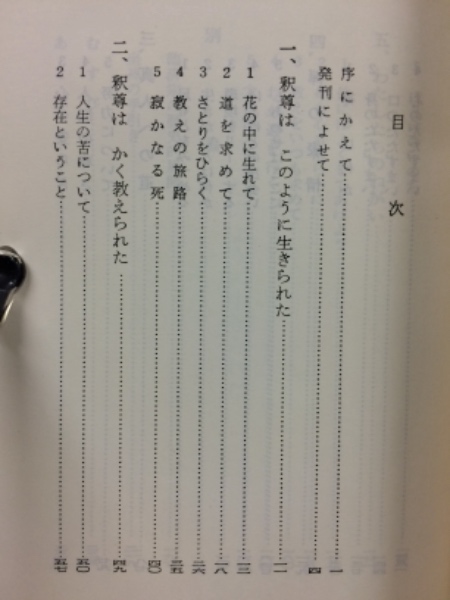 目次
序にかえて……一
発刊によせて……四
一、釈尊は このように生きられた……一一
1 花の中に生れて……一三
2 道を求めて……一八
3 さとりをひらく……二六
4 教えの旅路……三五
5 寂かなる死……四〇
二、釈尊は かく教えられた……四九
1 人生の苦について……五〇
2 存在ということ……五七